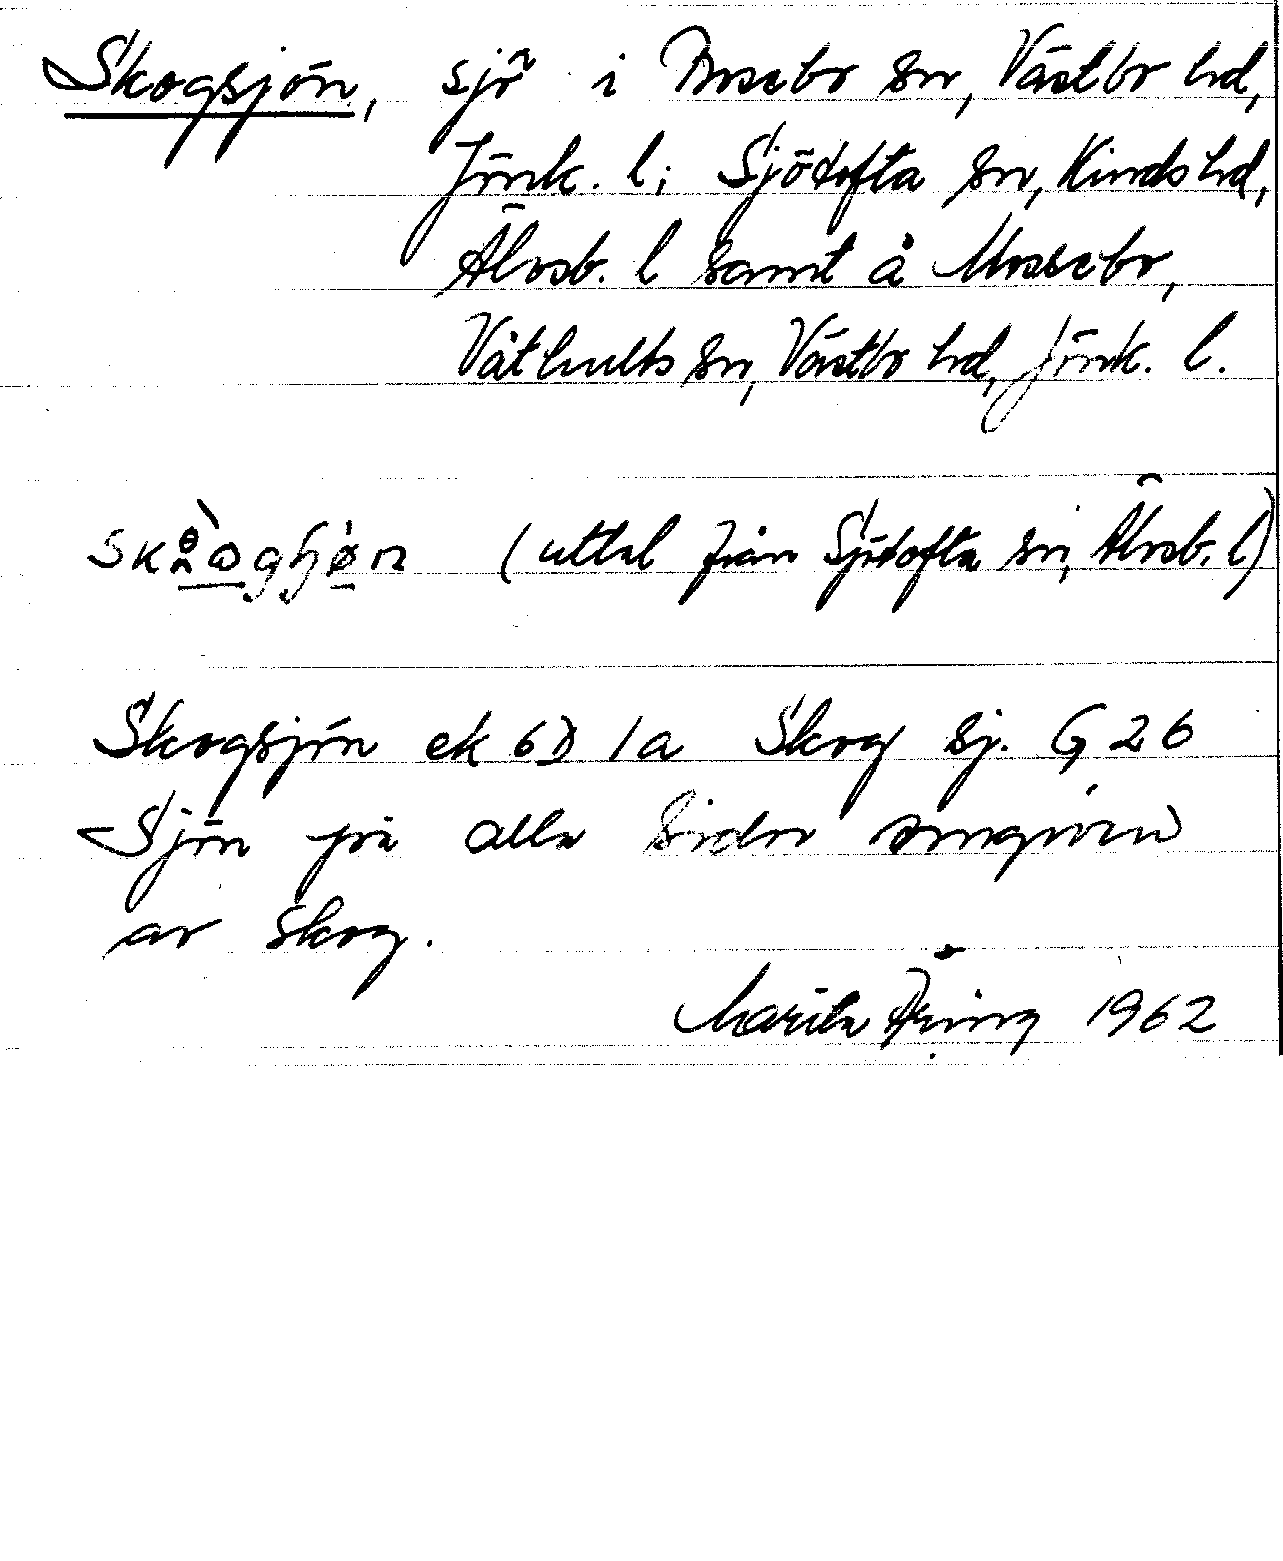 Skogsjön, sjö i Bosebo sn, Västbo hd,
Jönk. l; Sjötofta sn, Kinds hd,
Älvsb. l samt å Mossebo,
Våthults sn, Västbo hd, Jönk. l.
(uttal från Sjötofta sn, Älvsb. l)
Skogsjön ek 6D 1a Skog sj. G 26
Sjön på alla sidor omgiven
av skog.
Marita Äring 1962